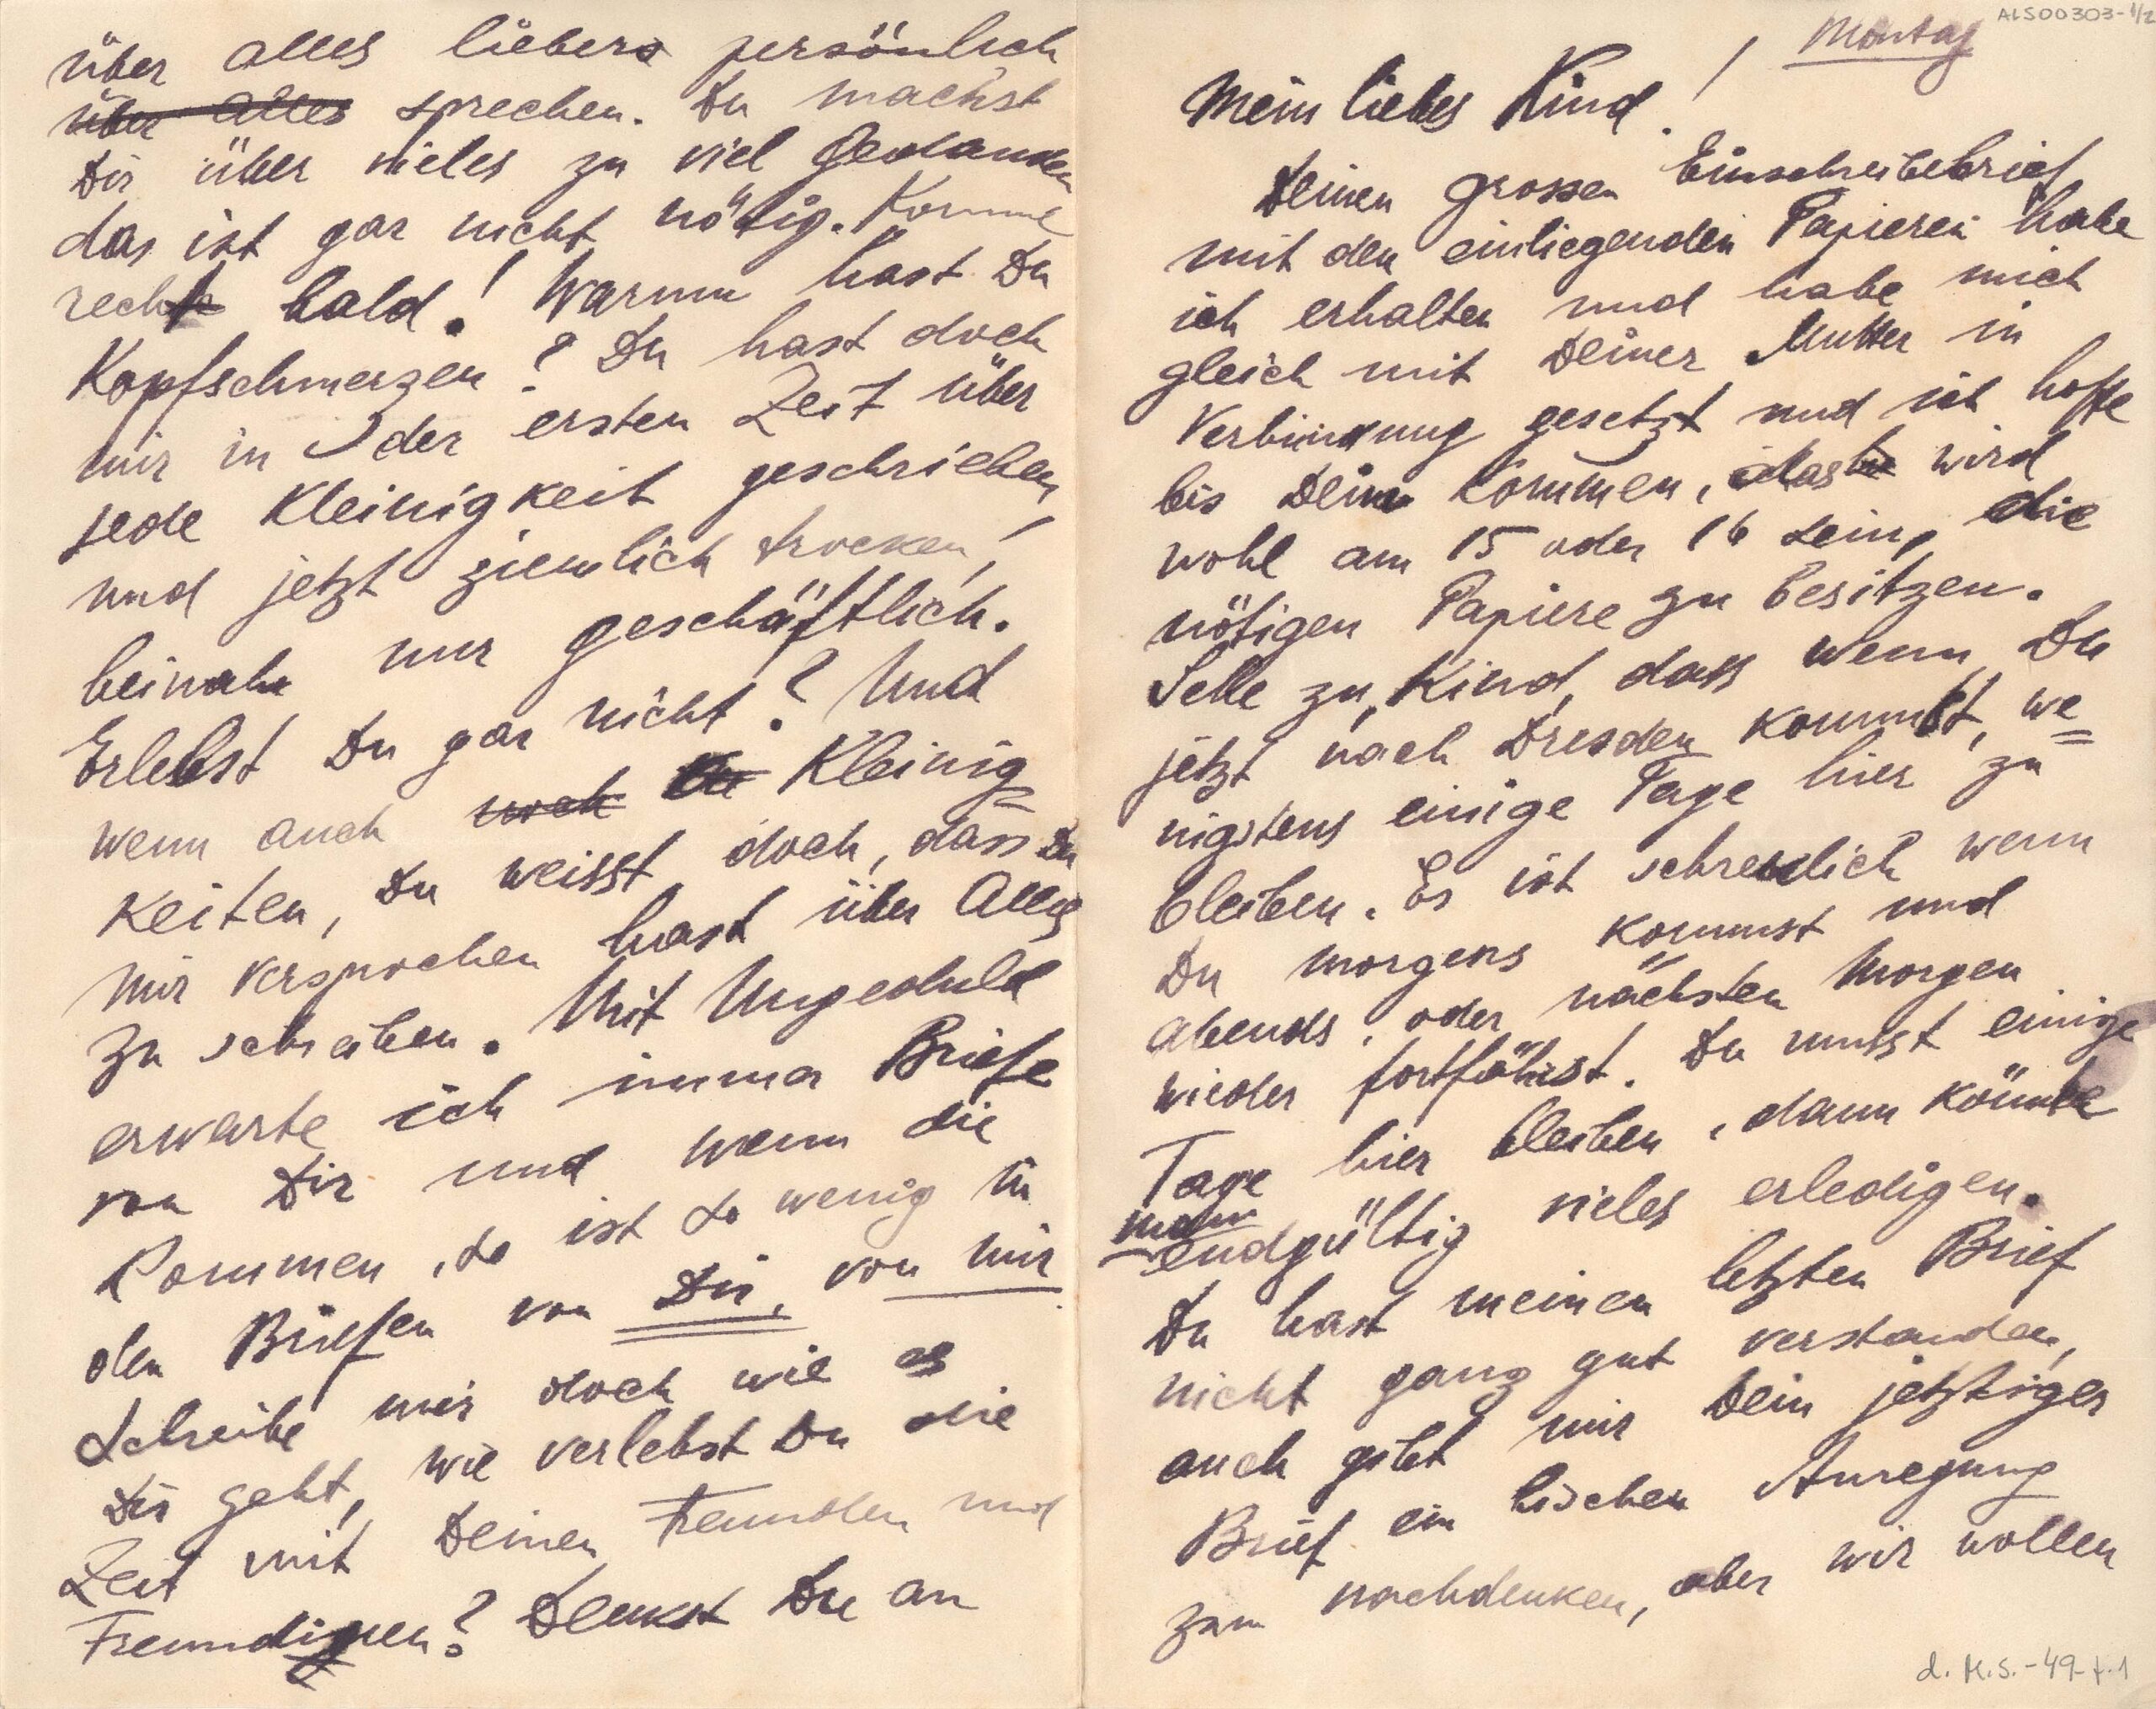 ALS00303-1/2
Montag
Mein liebes Kind!
Deinen grossen Einschreibebrief
mit den einliegenden Papieren habe
ich erhalten und habe mich
gleich mit Deiner Mutter in
Verbindung gesetzt und ich hoffe
bis Dein kommen, das wird
wohl am 15 oder 16 sein, die
nötigen Papiere zu besitzen.
Sehe zu, Kind, dass wenn Du
jetzt nach Dresden kommst, we=
nigstens einige Tage hier zu
bleiben. Es ist schrecklich wenn
Du morgens kommst und
abends, oder nächsten Morgen
wieder fortfährst. Du musst einige
Tage hier bleiben, dann könnte
man
endgültig vieles erledigen.
Du hast meinen letzten Brief
nicht ganz gut verstanden,
auch gibt mir Dein jetztiger
Brief ein bischen Anregung
zum nachdenken, aber wir wollen
d. M.S.-49-t.1
über alles liebers persönlich
über alles sprechen. Du machst
Dir über vieles zu viel Gedanken
das ist gar nicht nötig. Komme
recht bald! Warum hast Du
Kopfschmerzen? Du hast doch
mir in der ersten Zeit über
jede Kleinigkeit geschrieben,
und jetzt ziemlich trocken,
beinah nur geschäftlich.
Erlebst Du gar nicht? Und
wenn auch noch Kleinig=
keiten, Du weisst doch, dass Du
mir versprochen hast über Alles
zu schreiben. Mit Ungeduld
erwarte ich immer Briefe
von Dir und wenn die
kommen, so ist so wenig in
den Briefen von Dir, von mir.
Schreibe mir doch wie es
Dir geht, wie verlebst Du die
Zeit mit Deinen Freunden und
Freundinnen? Denkst Du an